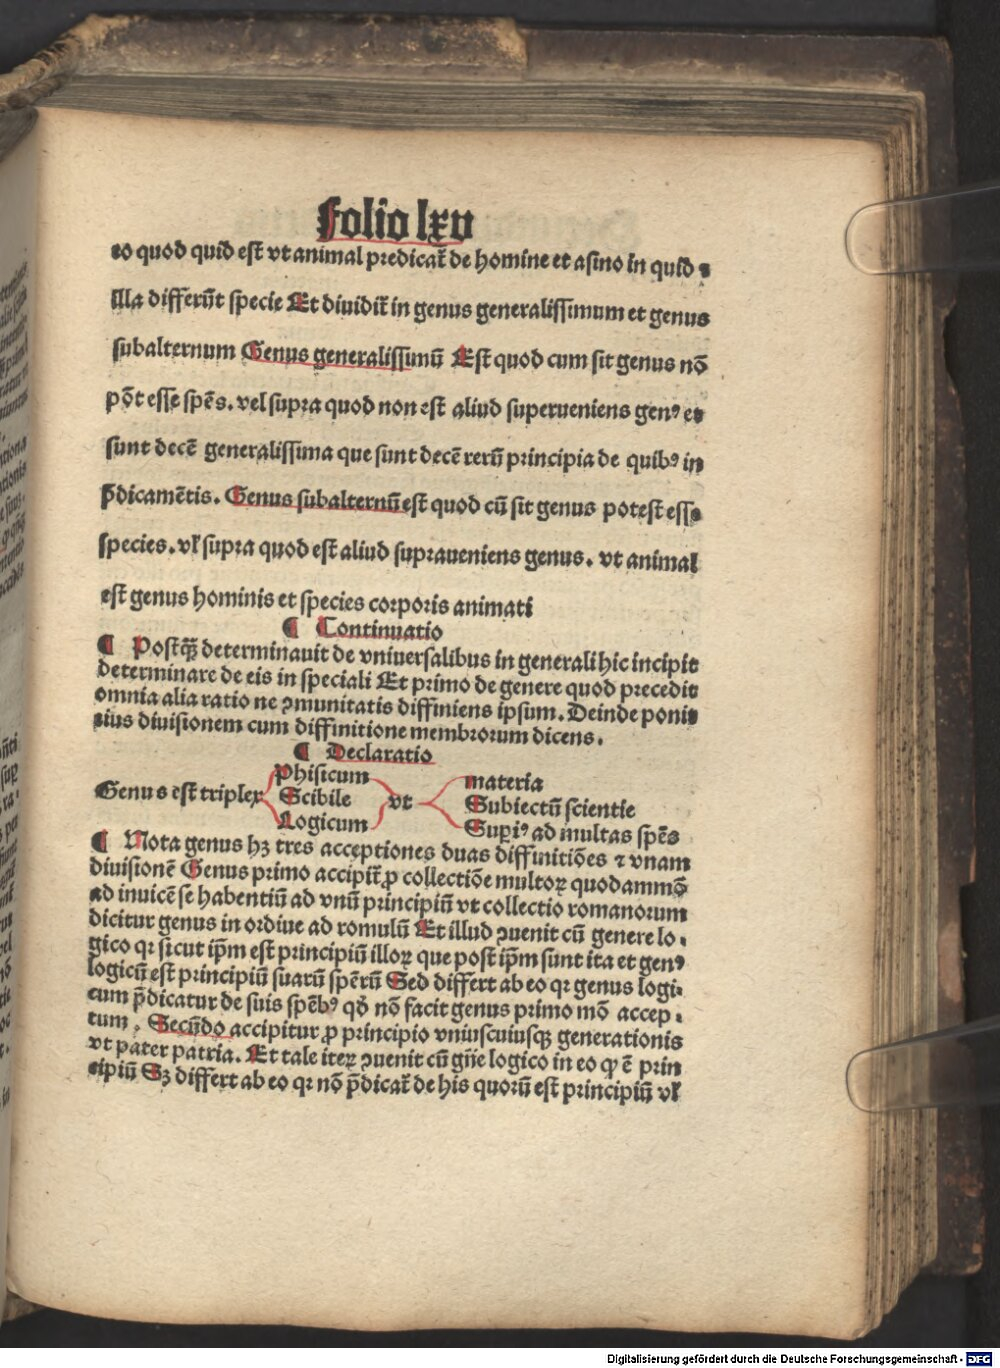 folio lxv
eo quod quid est vt animal predicat̃ de homine et asino in quid ⁊
illa differūt specie Et diuidit̃ in genus generalissimum et genus
subalternum Genus generalissimū Est quod cum sit genus nō
pōt esse spēs. vel supra quod non est aliud superueniens genꝰ et
sunt decē generalissima que sunt decē rerū principia de quibꝰ in
p̄dicamētis. Genus subalternū est quod cū sit genus potest esse
species. vl̄ supra quod est aliud supraueniens genus. vt animal
est genus hominis et species corporis animati
¶ Continuatio
¶ Postq̄ꝫ determinauit de vniuersalibus in generali hic incipit
determinare de eis in speciali Et primo de genere quod precedit
omnia alia ratio ne ꝯmunitatis diffiniens ipsum. Deinde ponit
eius diuisionem cum diffinitione membrorum dicens.
¶ Declaratio
Genus est triplex Phisicum Scibile Logicum vt materia Subiectū scientie Supiꝰ ad multas spēs
¶ Nota genus hꝫ tres acceptiones duas diffinitiōes ⁊ vnam
diuisionē Genus primo accipit̃ ꝓ collectiōe multoꝝ quodammō
ad inuicē se habentiū ad vnū principiū vt collectio romanorum
dicitur genus in ordine ad romulū Et illud ꝯuenit cū genere lo⸗
gico qr sicut ip̄m est principiū illoꝝ que post ip̄m sunt ita et genꝰ
logicū est principiū suarū spērū Sed differt ab eo qr genus logi⸗
cum p̄dicatur de suis spēbꝰ qđ nō facit genus primo mō accep⸗
tum. Secūdo accipitur ꝓ principio vniuscuiusqꝫ generationis
vt pater patria. Et tale iteꝝ ꝯuenit cū gn̄e logico in eo ꝙ ē prin
cipiū Sꝫ differt ab eo qr nō p̄dicat̃ de his quorū est principiū vl̄
Digitalisierung gefördert durch die Deutsche Forschungsgemeinschaft - DFG